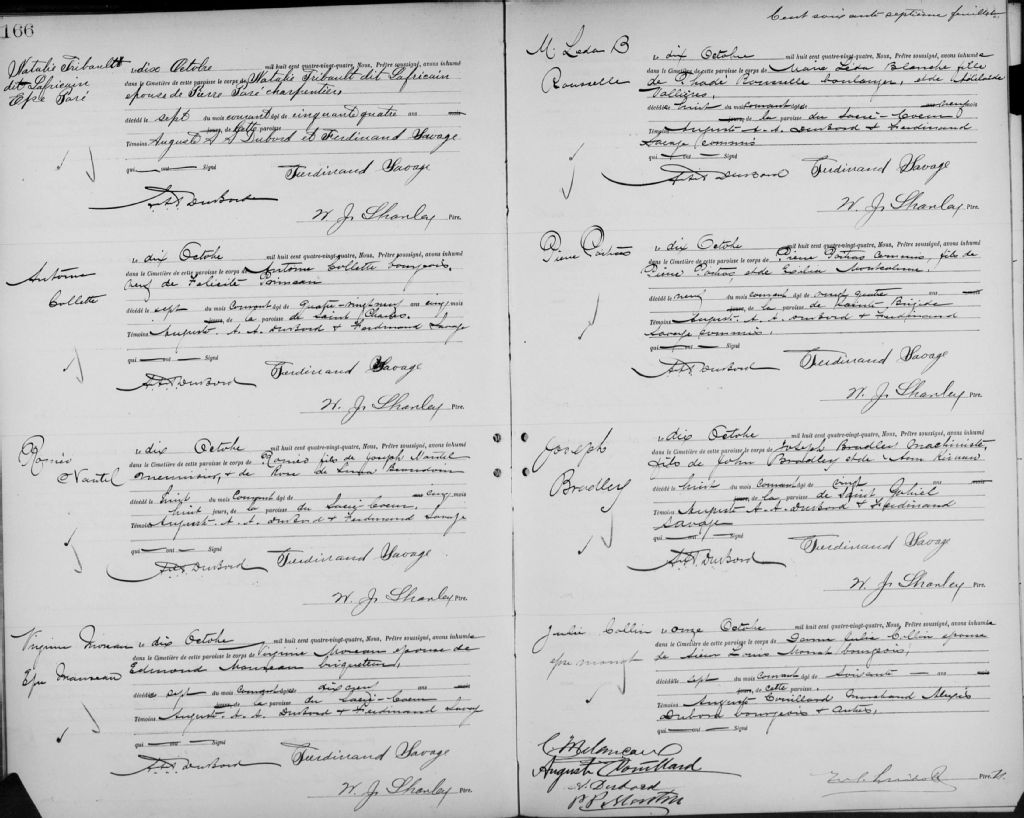 166
Natalie Tribault
dit Lafricain
Epse Paré
le dix Octobre mil huit cent quatre-vingt-quatre, Nous, Prêtre soussigné, avons inhumé
dans le Cimetière de cette paroisse le corps de Natalie Tribault dit Lafricain
epouse de Pierre Paré charpentiers
décédé le sept du mois courant âgé de cinquante quatre ans mois
jours, de cette paroisse
Témoins August A A Dubord et Ferdinand Savage
qui ont Signé
Ferdinand Savage
A.A. DuBord
W. J. Shanley Ptre.
Antoine
Collette
le dix Octobre mil huit cent quatre-vingt-quatre, Nous, Prêtre soussigné, avons inhumé
dans le Cimetière de cette paroisse le corps de Antoine Collette bourgeois,
veuf de Felicité
décédé le sept du mois courant âgé de quatre-vingt neuf ans cinq mois
jours, de la paroisse de Saint Charles.
Témoins August A. A. DuBord & Ferdinand Savage
qui ont Signé
Ferdinand Savage
A.A. DuBord
W. J. Shanley Ptre.
Roméo
Nantel
le dix Octobre mil huit cent quatre-vingt-quatre, Nous, Prêtre soussigné, avons inhumé
dans le Cimetière de cette paroisse le corps de Roméo fils de Joseph Nantel
menuisier, & de Rose de Lima Beaudoin
décédé le huit du mois courant âgé de ans cinq mois
huit jours, de la paroisse du Sacré-Coeur.
Témoins August A. A. DuBord & Ferdinand Savage
qui ont Signé
Ferdinand Savage
A.A. DuBord
W. J. Shanley Ptre.
Virginie Moreau
Epse Manseau
le dix Octobre mil huit cent quatre-vingt-quatre, Nous, Prêtre soussigné, avons inhumé
dans le Cimetière de cette paroisse le corps de Virginie Moreau epouse de
Edmond Manseau briquetier,
décédé le sept du mois courant âgé de ans mois
jours, de la paroisse du Sacré-Coeur
Témoins August A. A. DuBord & Ferdinand Savage
qui ont Signé
Ferdinand Savage
A.A. DuBord
W. J. Shanley Ptre.
Cent soixante septième feuillet
M. Leda B
Rousselle
le dix Octobre mil huit cent quatre-vingt-quatre, Nous, Prêtre soussigné, avons inhumé
dans le Cimetière de cette paroisse le corps de Marie Léda Blanche fille
de Rousselle boulanger, et de
Vallières,
décédé le huit du mois courant âgé de mois
jours, de la paroisse du Sacré-Coeur
Témoins August A. A. DuBord & Ferdinand
Savage commis
qui ont Signé
A.A. DuBord
Ferdinand Savage
W. J. Shanley Ptre.
Pierre Poitras
le dix Octobre mil huit cent quatre-vingt-quatre, Nous, Prêtre soussigné, avons inhumé
dans le Cimetière de cette paroisse le corps de Pierre Poitras commis, fils de
Pierre Poitras, et de
décédé le neuf du mois courant âgé de vingt quatre ans mois
jours, de la paroisse de Sainte Brigide
Témoins August A. A. DuBord & Ferdinand
Savage commis.
qui ont Signé
A.A. DuBord
Ferdinand Savage
W. J. Shanley Ptre.
Joseph
Bradley
le dix Octobre mil huit cent quatre-vingt-quatre, Nous, Prêtre soussigné, avons inhumé
dans le Cimetière de cette paroisse le corps de Joseph Bradley machiniste,
fils de John Bradley et de Ann
décédé le huit du mois courant âgé de vingt ans mois
jours, de la paroisse de Saint Gabriel
Témoins August A. A. DuBord & Ferdinand
Savage
qui ont Signé
A.A. DuBord
Ferdinand Savage
W. J. Shanley Ptre.
Julie Collin
le onze Octobre mil huit cent quatre-vingt-quatre, Nous, Prêtre soussigné, avons inhumé
dans le Cimetière de cette paroisse le corps de Dame Julie Collin epouse
de Sieur Louis bourgeois,
décédé le sept du mois courant âgé de soixante ans mois
jours, de cette paroisse
Témoins August marchand Alexis
Dubord bourgeois & autres,
qui ont Signé
A. Dubord
Ptre.